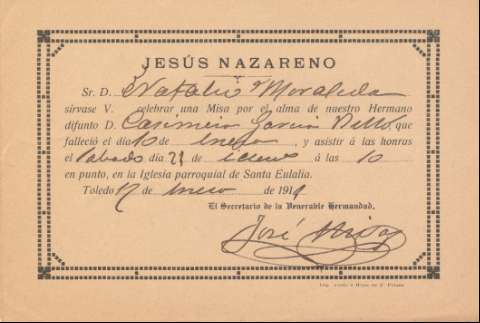 JESÚS NAZARENO
Sr. D. Natalio Moraleda
sírvase V. celebrar una Misa por el alma de nuestro Hermano
difunto D. Casimiro García que
falleció el día 10 de Enero, y asistir á las honras
el Sabado día 21 de á las 10
en punto, en la Iglesia parroquial de Santa Eulalia.
Toledo 17 de enero de 191
El Secretario de la Venerable Hermandad,
José